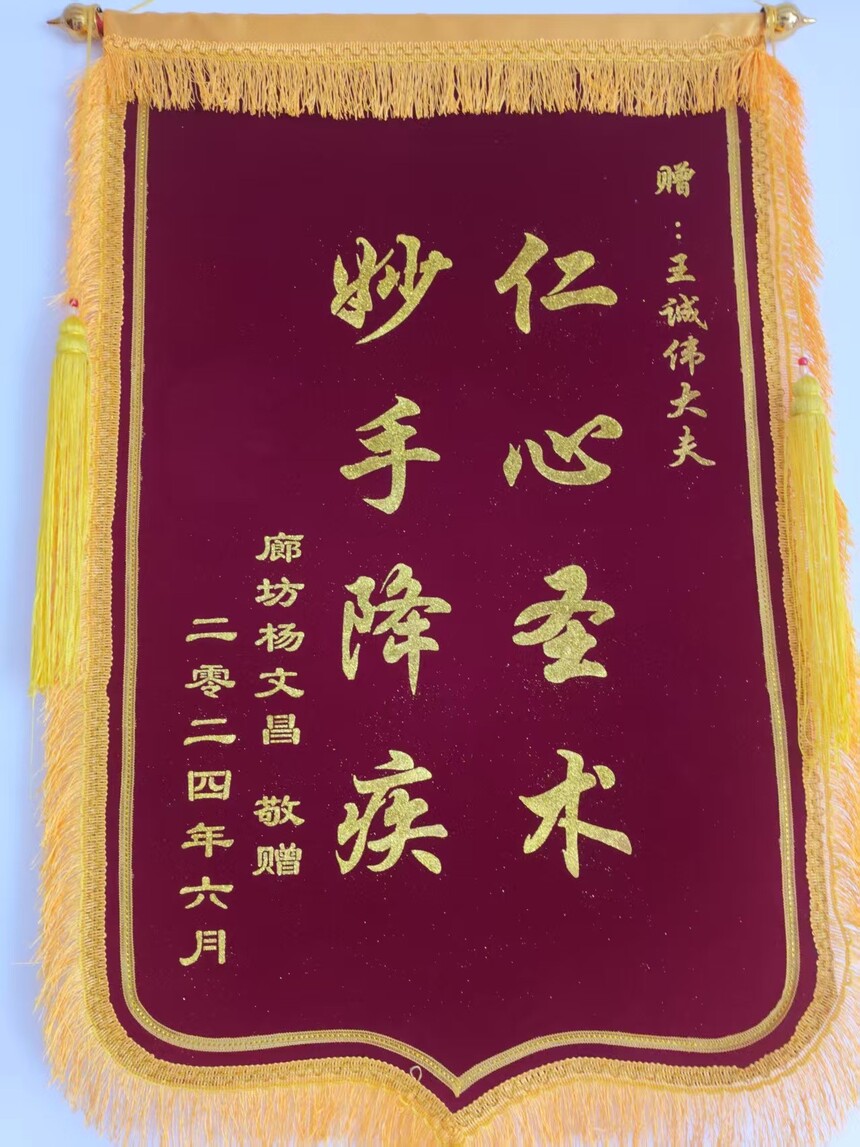 赠：王诚伟大夫
仁心圣术
妙手降疾
廊坊杨文昌 敬赠
二零二四年六月